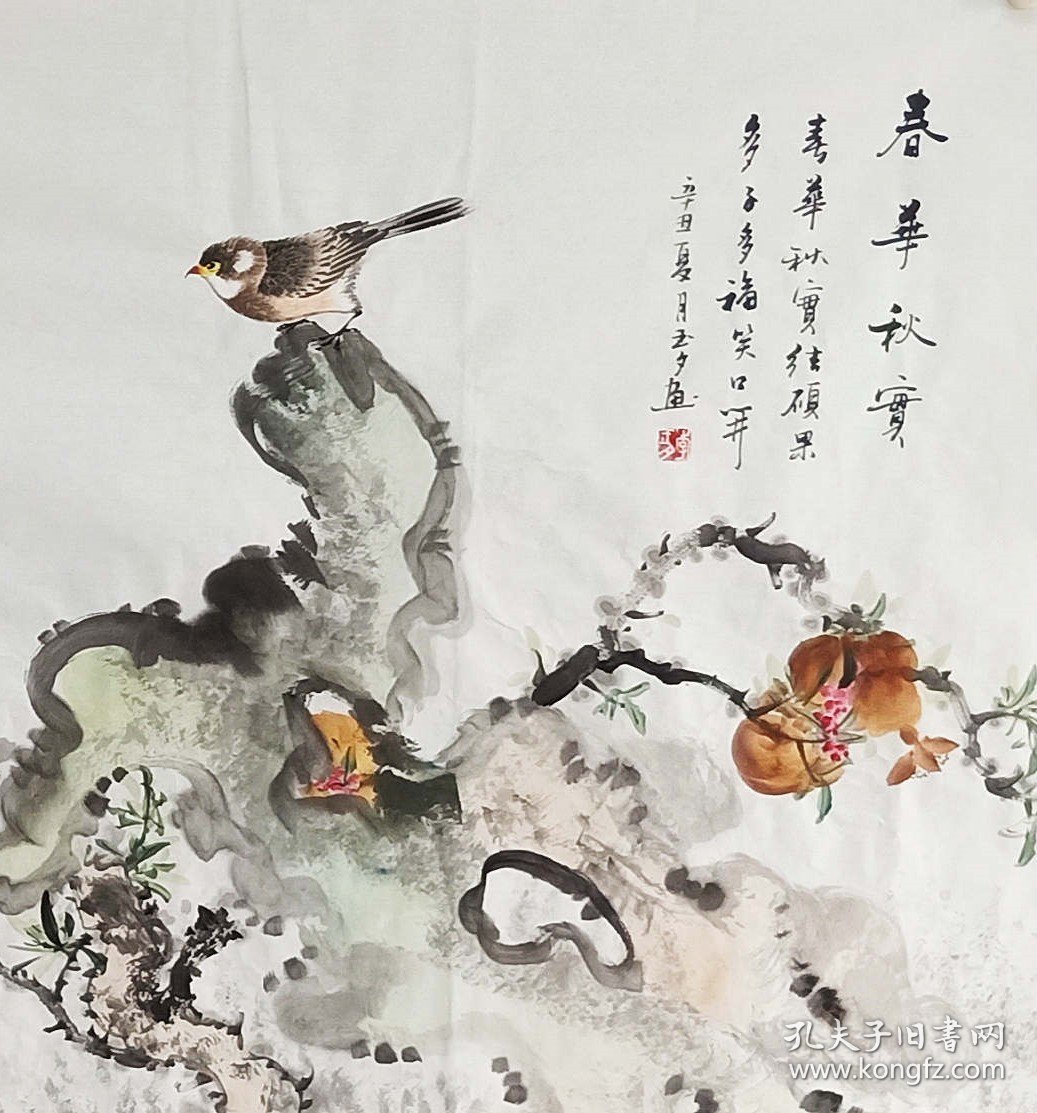 春華秋實
春華秋實結碩果
多子多福笑口開
辛丑夏月玉夕畫
孔夫子旧书网
www.kongfz.com